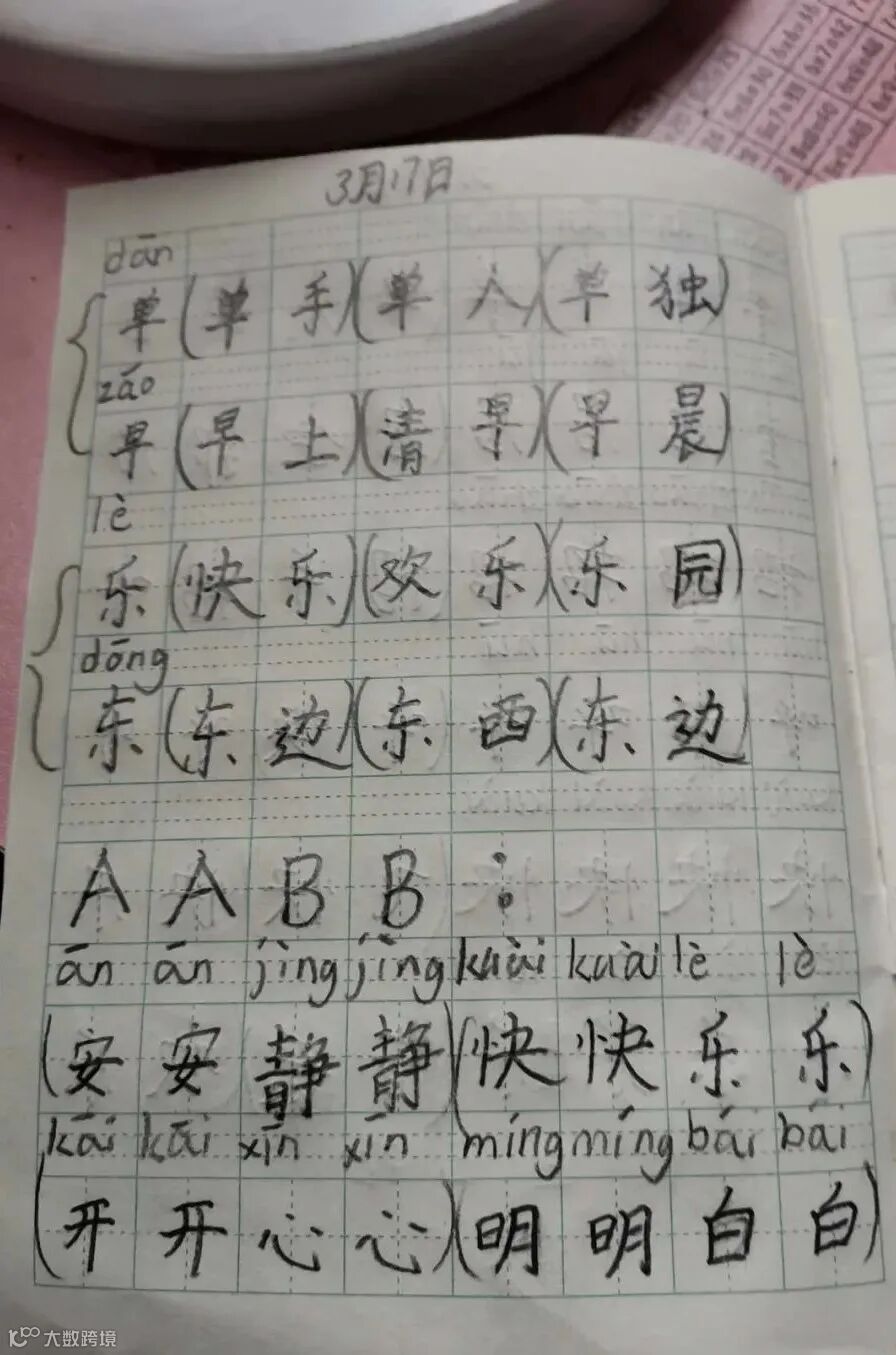 3月17日
dān
单(单手)(单人)(单独)
zǎo
早(早上)(清早)(早晨)
lè
乐(快乐)(欢乐)(乐园)
dōng
东(东边)(东西)(东边)
AABB:
ān ān jìng jìng kuài kuài lè lè
(安安静静)(快快乐乐)
kāi kāi xīn xīn míng míng bái bái
(开开心心)(明明白白)
大数跨境